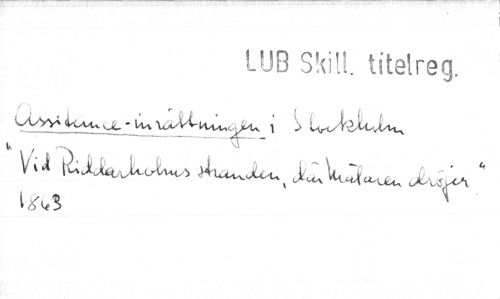 LUB Skill. titelreg.
Assistance-inrättningen i Stockholm
"Vid Riddarholms stranden, där Mälaren dröjer"
1863